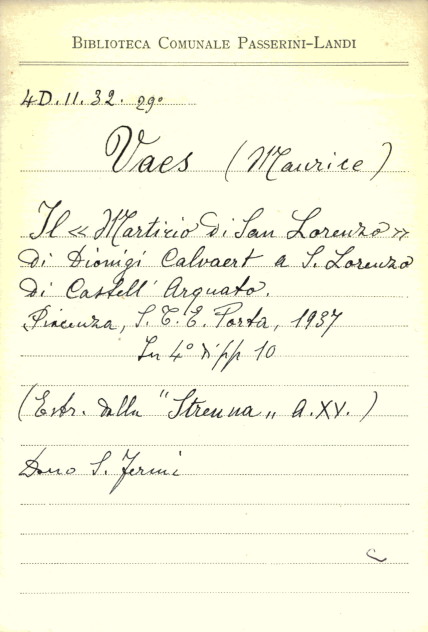 BIBLIOTECA COMUNALE PASSERINI-LANDI
4D.II.32. 29º
Vaes (Maurice)
Il « Martirio di San Lorenzo »
di Dionigi Calvaert a S. Lorenzo
di Castell' Arquato.
Piacenza, S. T. E. Porta, 1937
In 4º di pp 10
(Estr. dalla "Strenna" A. XV.)
Dono S. Fermi
C